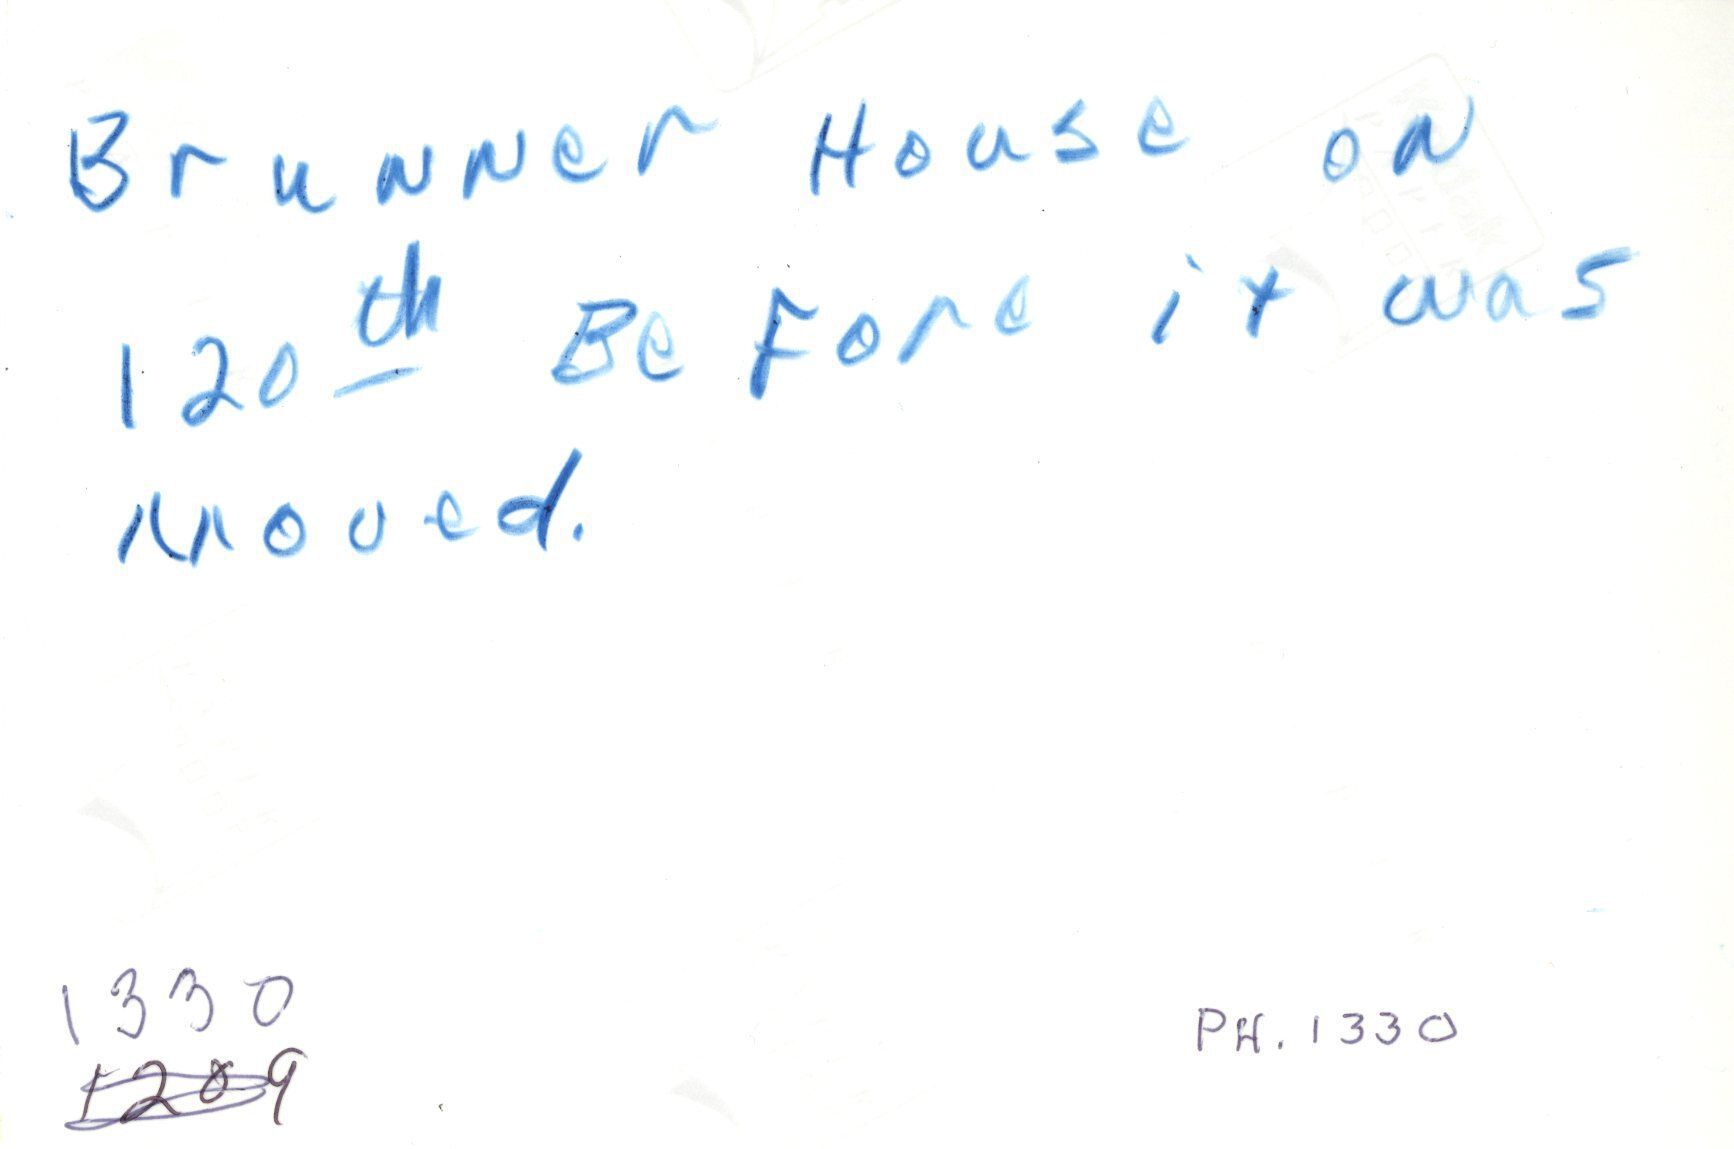 Brunner House on
120th Before it was
moved.
1330
1209
PH. 1330